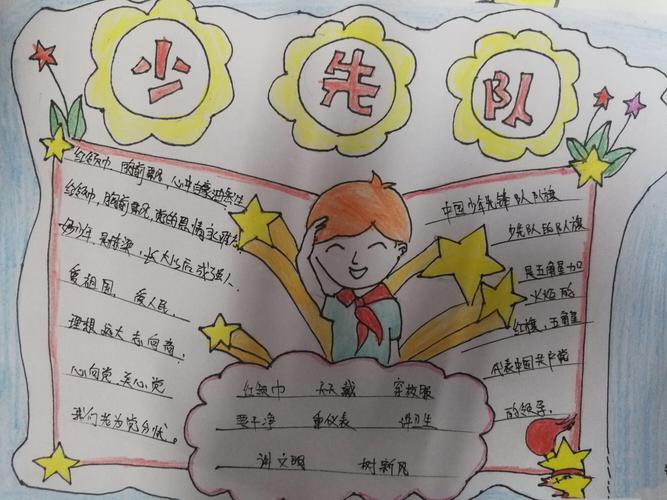 少先队
红领巾,胸前飘,心中自豪油然生
红领巾,胸前飘,党的恩情永
少年,是栋梁,长大以后成强人.
爱祖国,爱人民.
理想远大志向高.
心向党 关心党
我们为党分忧。
中国少年先锋队队旗
少先队的队旗
是五角星加
火炬的
红旗,五角星
代表中国共产党
的领导.
红领巾 天天戴 穿校服
要干净 重仪表 讲卫生
讲文明 树新风